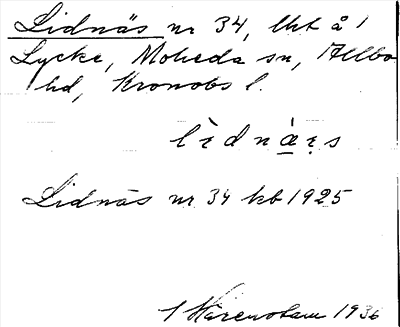 Lidnäs nr 34, lht å 1
Lycke, Moheda sn, Allbo
hd, Kronobs l.
lìdnæ̀ṣ
Lidnäs nr 34 kb 1925
1936